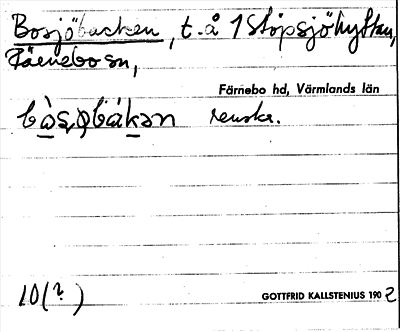 Bosjöbacken, t. å 1 Stöpsjöhyttan,
Färnebo sn,
Färnebo hd, Värmlands län
10(?)
GOTTFRID KALLSTENIUS 1902